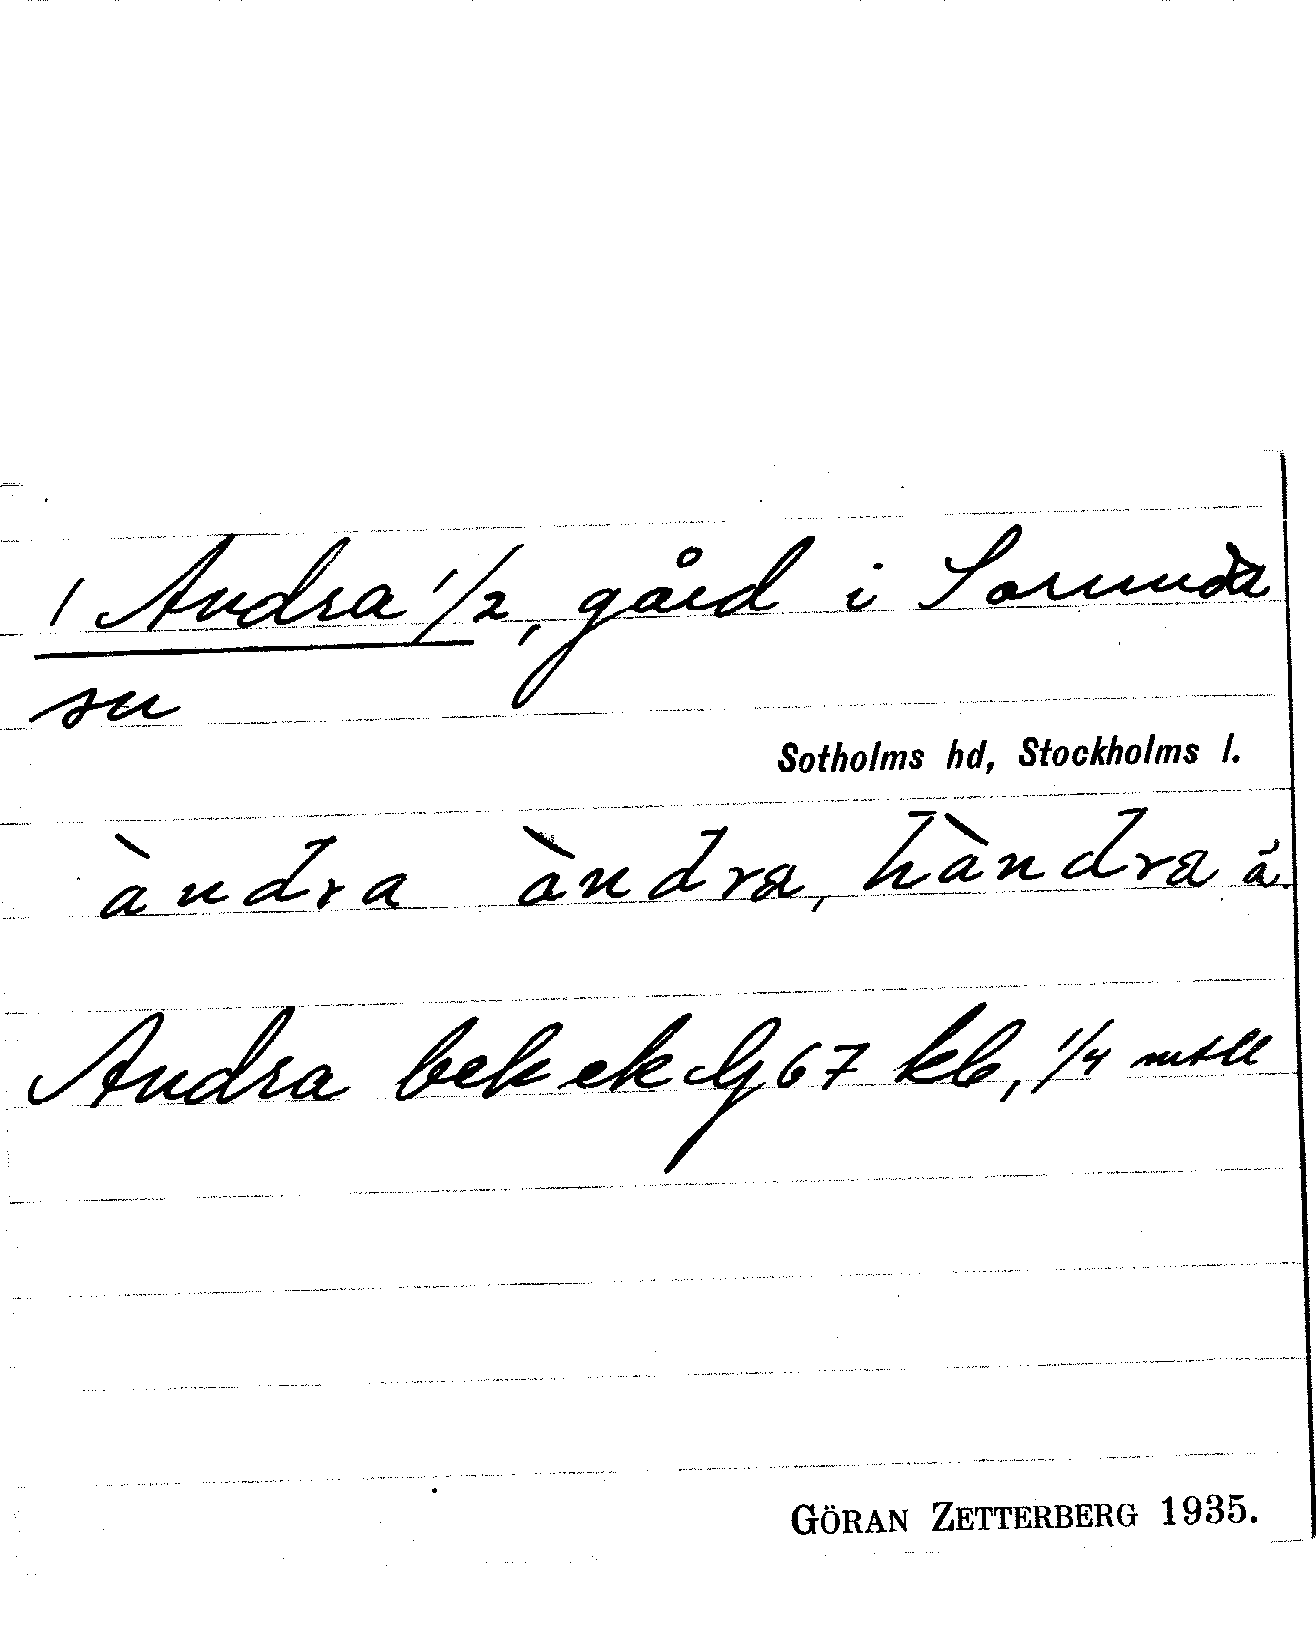 1 Andra 1/2, gård i Sorunda
sn
Sotholms hd, Stockholms l.
àndra àndra, hàndra ä.
Andra bek ek G 67 kb, 1/4 mtll
GÖRAN ZETTERBERG 1935.